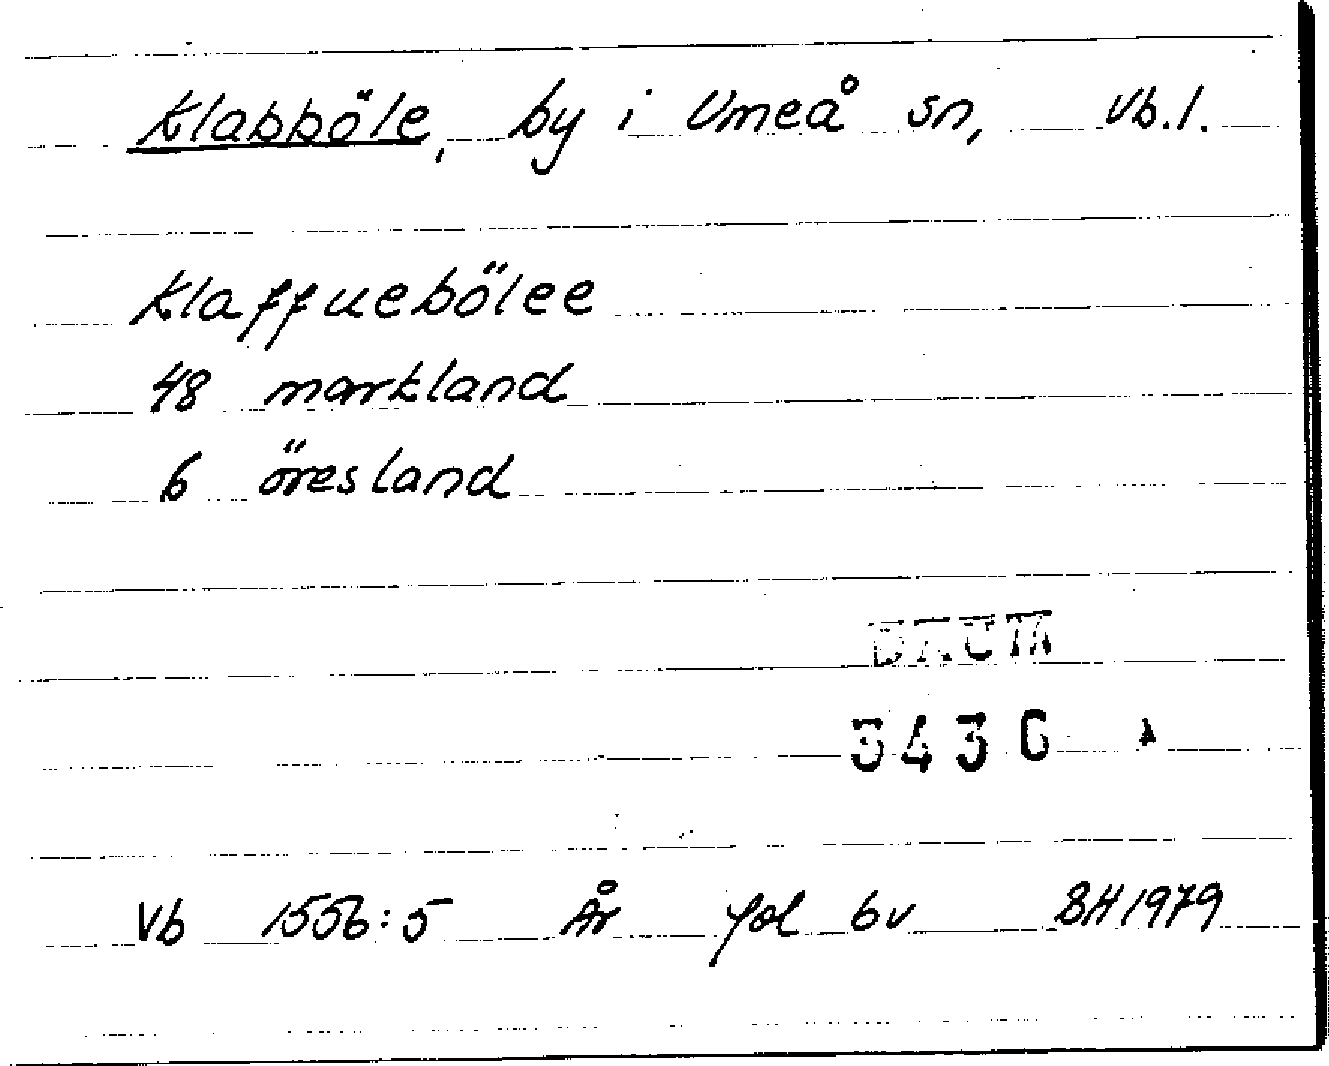 Klabböle, by i Umeå sn, Vb.l.
Klaffuebölee
48 markland
6 öresland
DAUM
3436
Vb 1556:5 År fol 6v BH 1979